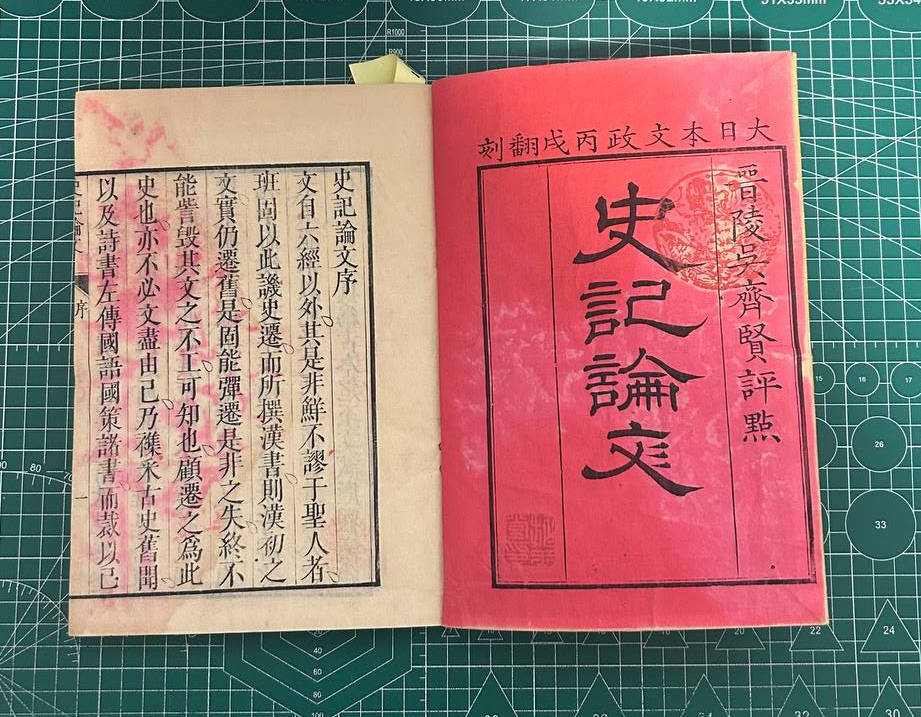 大日本文政丙戌翻刻
晋陵吳齊賢評點
史記論文
史記論文序
文自六經以外其是非鮮不謬于聖人者
班固以此譏史遷而所撰漢書則漢初之
文實仍遷舊是固能彈遷是非之失終不
能訾毀其文之不工可知也顧遷之為此
史也亦不必文盡由己乃襍采古史舊聞
以及詩書左傳國語國策諸書而裁以己
史記論文
序
一
R1000
R900
15
16
17
26
33
22
24
20
18
30
80
90
40
60
80
100